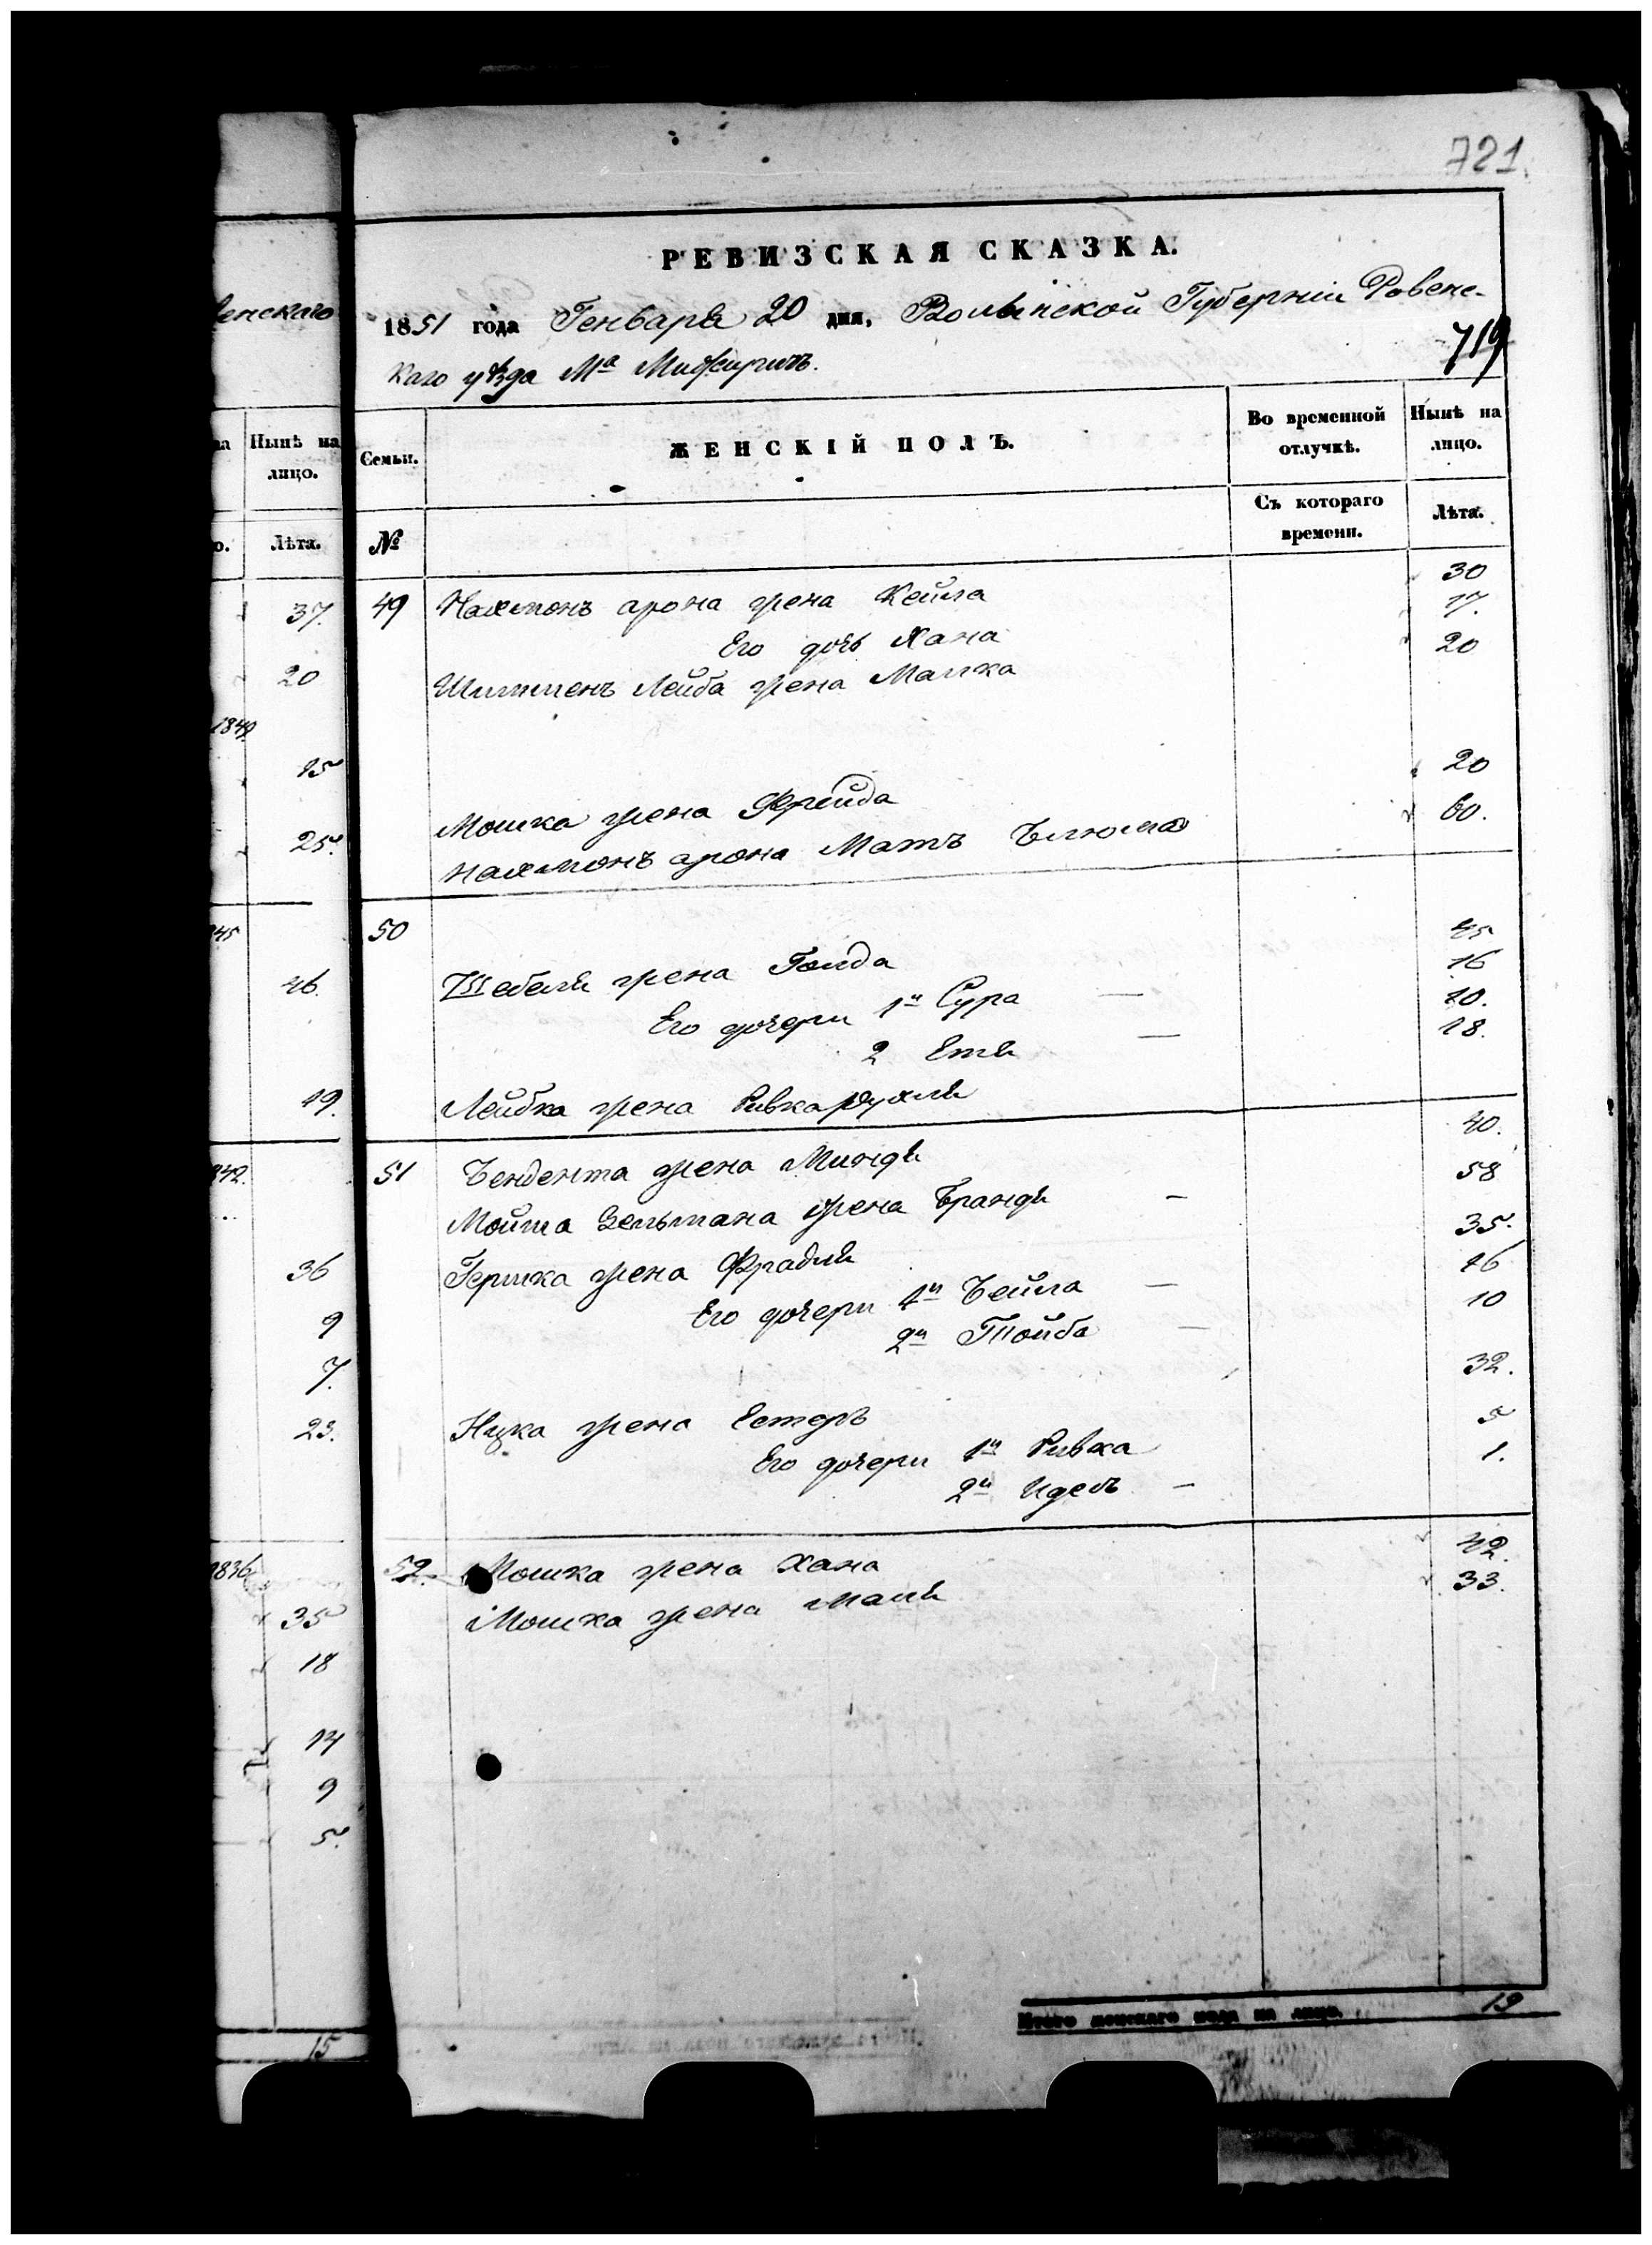 721.
РЕВИЗСКАЯ СКАЗКА.
1851 года Генваря 20 дня, Волынской Губерніи Ровенс-
каго уѣзда Ма Межиричъ.
719
енскаго
Нынѣ на лицо.
Лѣта.
37.
20
1849
15
25.
845
46.
19.
842.
36
9
7.
23.
1836
35
18
14
9
5.
15
Семьи.
ЖЕНСКІЙ ПОЛЪ.
Во временной отлучкѣ.
Нынѣ на лицо.
№
Съ котораго времени.
Лѣта.
49 Нахмонъ арона жена Кейла 30
Его дочь Хана 17.
Лейба жена Малка 20
Мошка жена Фрейда 20
Нахмонъ арона Мать Блюма 60.
50
жена Голда 45
Его дочери 1я Сура 16
2 Етя 10.
Лейбка жена Ривка рухля 18.
51 Бендета жена Миндя 40.
Зельмана жена Брандя 58
Гершка жена Фрадля 35.
Его дочери 1я Бейла 16
2я Тойба 10
жена Естеръ 32.
Его дочери 1я Ривка 5
2я Идесъ 1.
52. Мошка жена Хана 42.
Мошка жена Маля 33.
Итого женскаго пола на лицо. 19